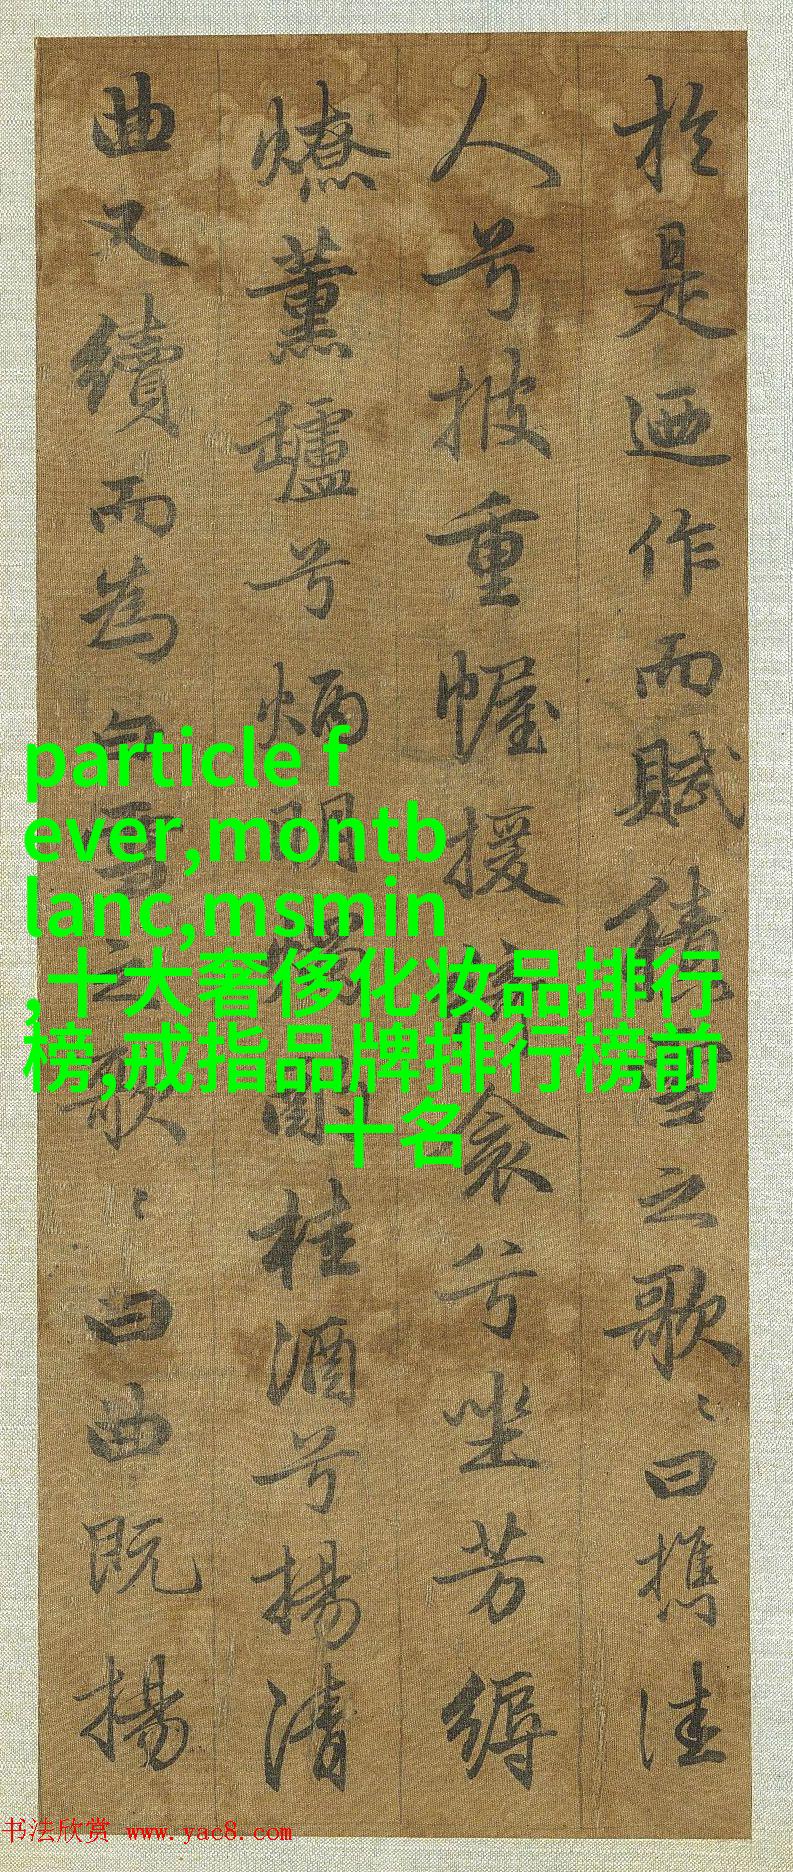 於是迺作而賦積雪之歌〻曰攜佳
人兮披重幄援綺衾兮坐芳縟
燎薰罏兮炳明燭酌桂酒兮揚清
曲又續而為白雪之歌〻曰曲既揚
particle f
ever,montb
lanc,msmin
,十大奢侈化妆品排行
榜,戒指品牌排行榜前
十名
书法欣赏 www.yac8.com